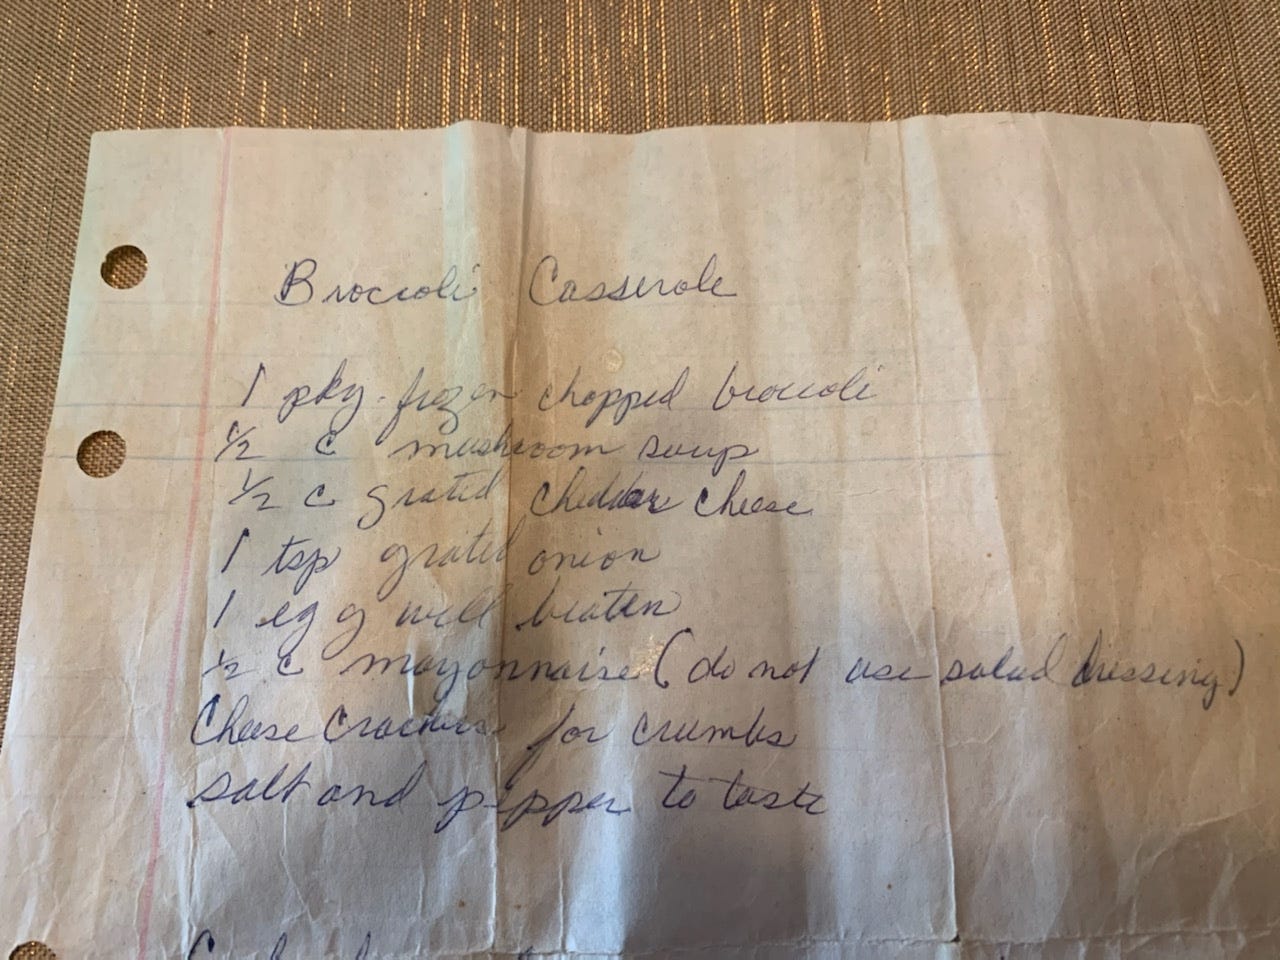 Broccoli Casserole
1 pkg. frozen chopped broccoli
1/2 c mushroom soup
1/2 c grated cheddar cheese
1 tsp grated onion
1 egg well beaten
1/2 c mayonnaise (do not use salad dressing)
Cheese crackers for crumbs
salt and pepper to taste